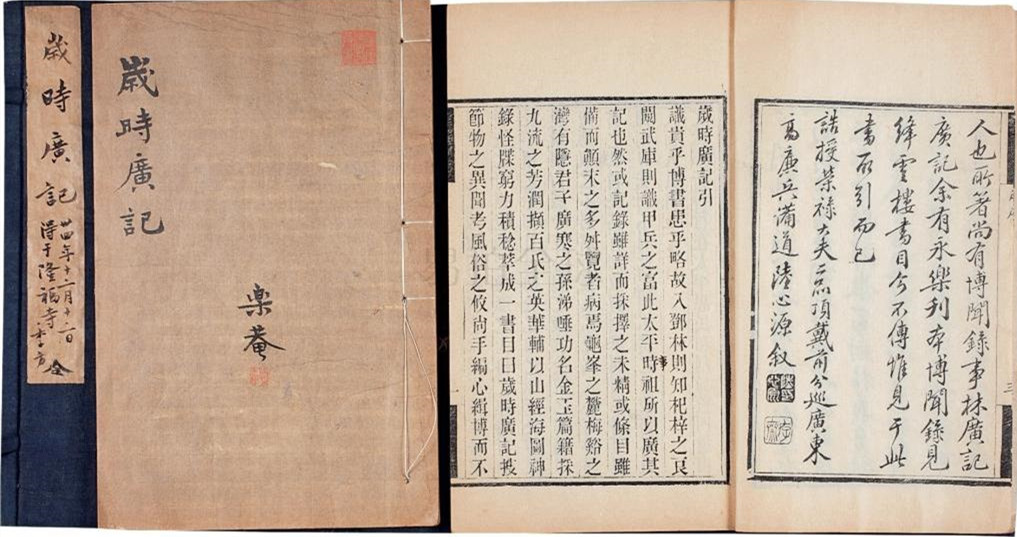 歲時廣記
得于隆福寺
歲時廣記
楽菴
人也所著尚有博聞錄事林廣記
廣記余有永樂刊本博聞錄見
絳雲樓書目今不傳惟見于此
書所引而已
誥授榮祿大夫二品頂戴前分巡廣東
高廉兵備道陸心源叙
歲時廣記引
識貴乎博書患乎略故入鄧林則知杞梓之良
閱武庫則識甲兵之富此太平時祖所以廣其
事
記也然或記錄雖詳而採擇之未精或條目雖
備而顛末之多舛覽者病焉龜峯之麓梅谿之
灣有隱君子廣寒之孫涕唾功名金玉篇籍採
九流之芳潤擷百氏之英華輔以山經海圖神
錄怪牒窮力積稔萃成一書目曰歲時廣記披
節物之異聞考風俗之攸尚手編心緝博而不